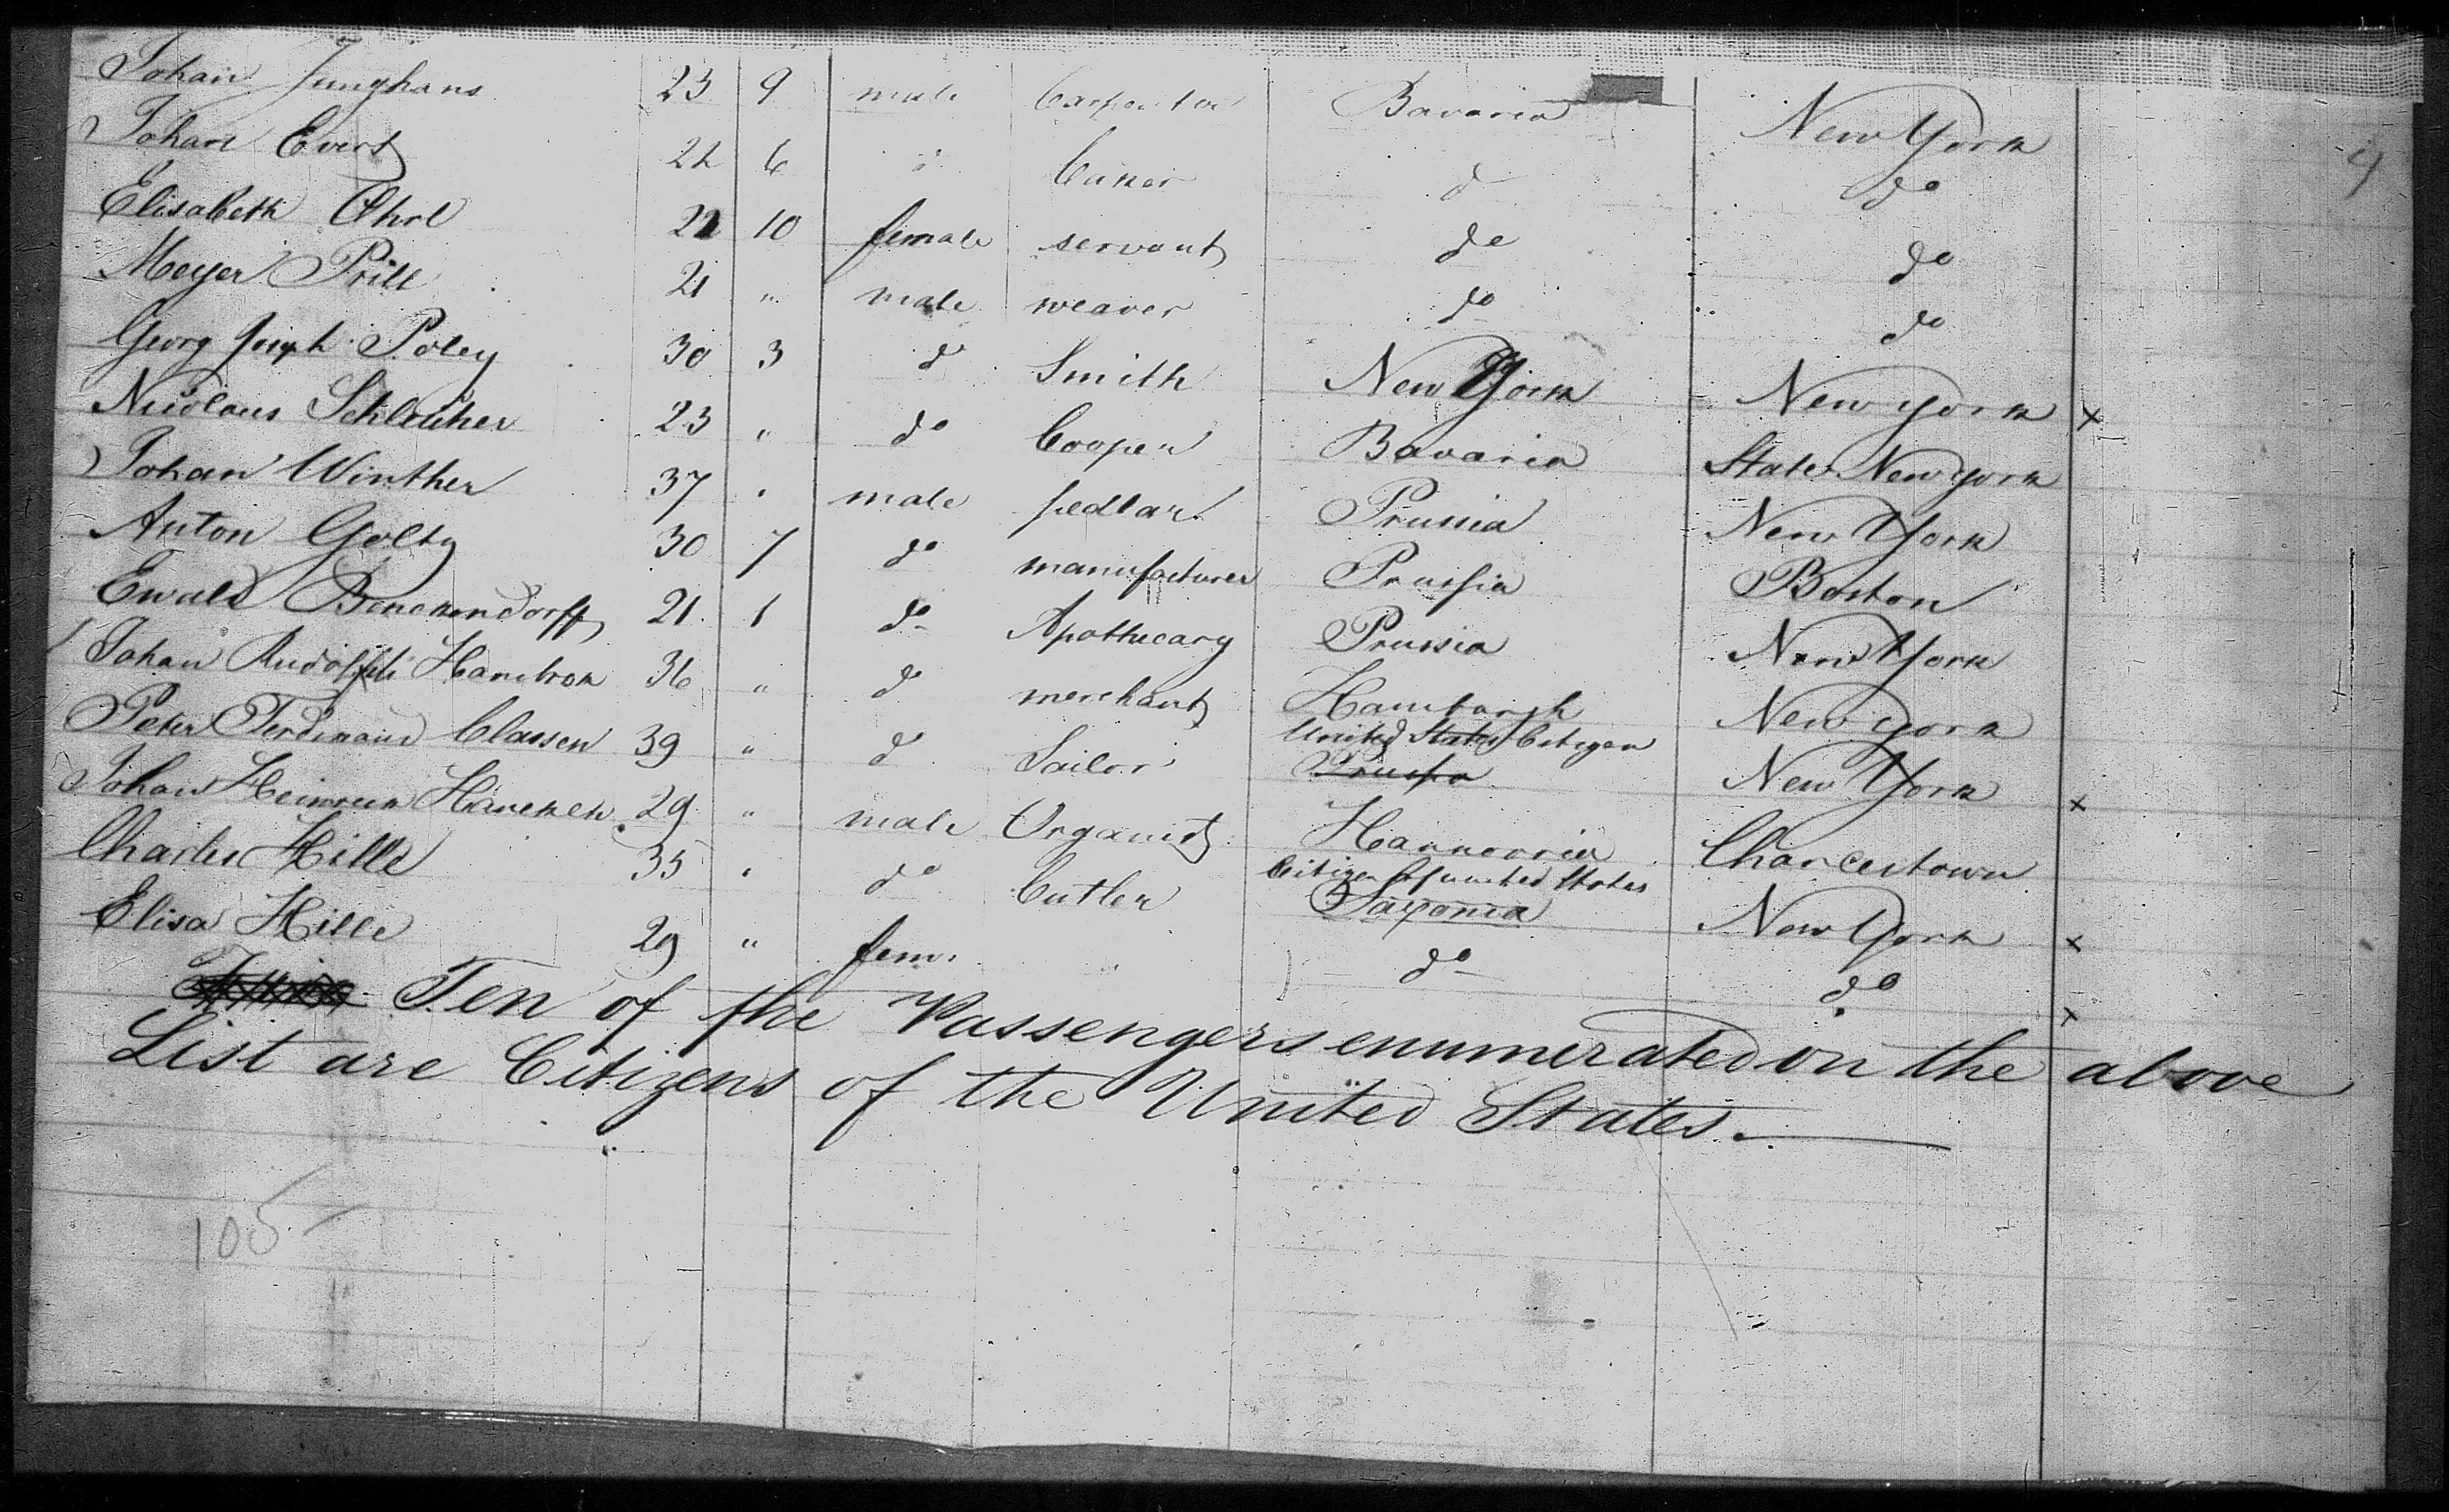 Johan Junghans 23 9 male Carpenter Bavaria New York
Johan Evert 22 6 d Baker d do
Elisabeth Ohrl 22 10 female servant do do
Meyer Prill 21 " male weaver do do
Georg Joseph Poley 30 3 d Smith New York New York x
Nicolaus Schleicher 23 " do Cooper Bavaria State New York
Johan Winther 37 " male pedlar Prussia New York
Anton Goltz 30 7 do manufacturer Prussia Boston
Ewald Benckendorff 21 1 do Apothecary Prussia New York
Johan Rudolph Hambrok 36 " do merchant Hamburgh New York
Peter Ferdinand Classen 39 " do Sailor United States Citizen Prussia New York x
Johan Heinrich Haneken 29 " male Organist Hannoveria Charlestown
Charles Hille 35 " do Cutler Citizen of united States Saxonia New York x
Elisa Hille 29 " fem. do do x
Ten of the Passengers enumerated on the above
List are Citizens of the United States.
105